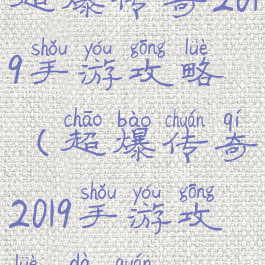 超爆传奇201
shǒu yóu gōng lüè
9手游攻略
chāo bào chuán qí
(超爆传奇
shǒu yóu gōng
2019手游攻
lüè dà quán